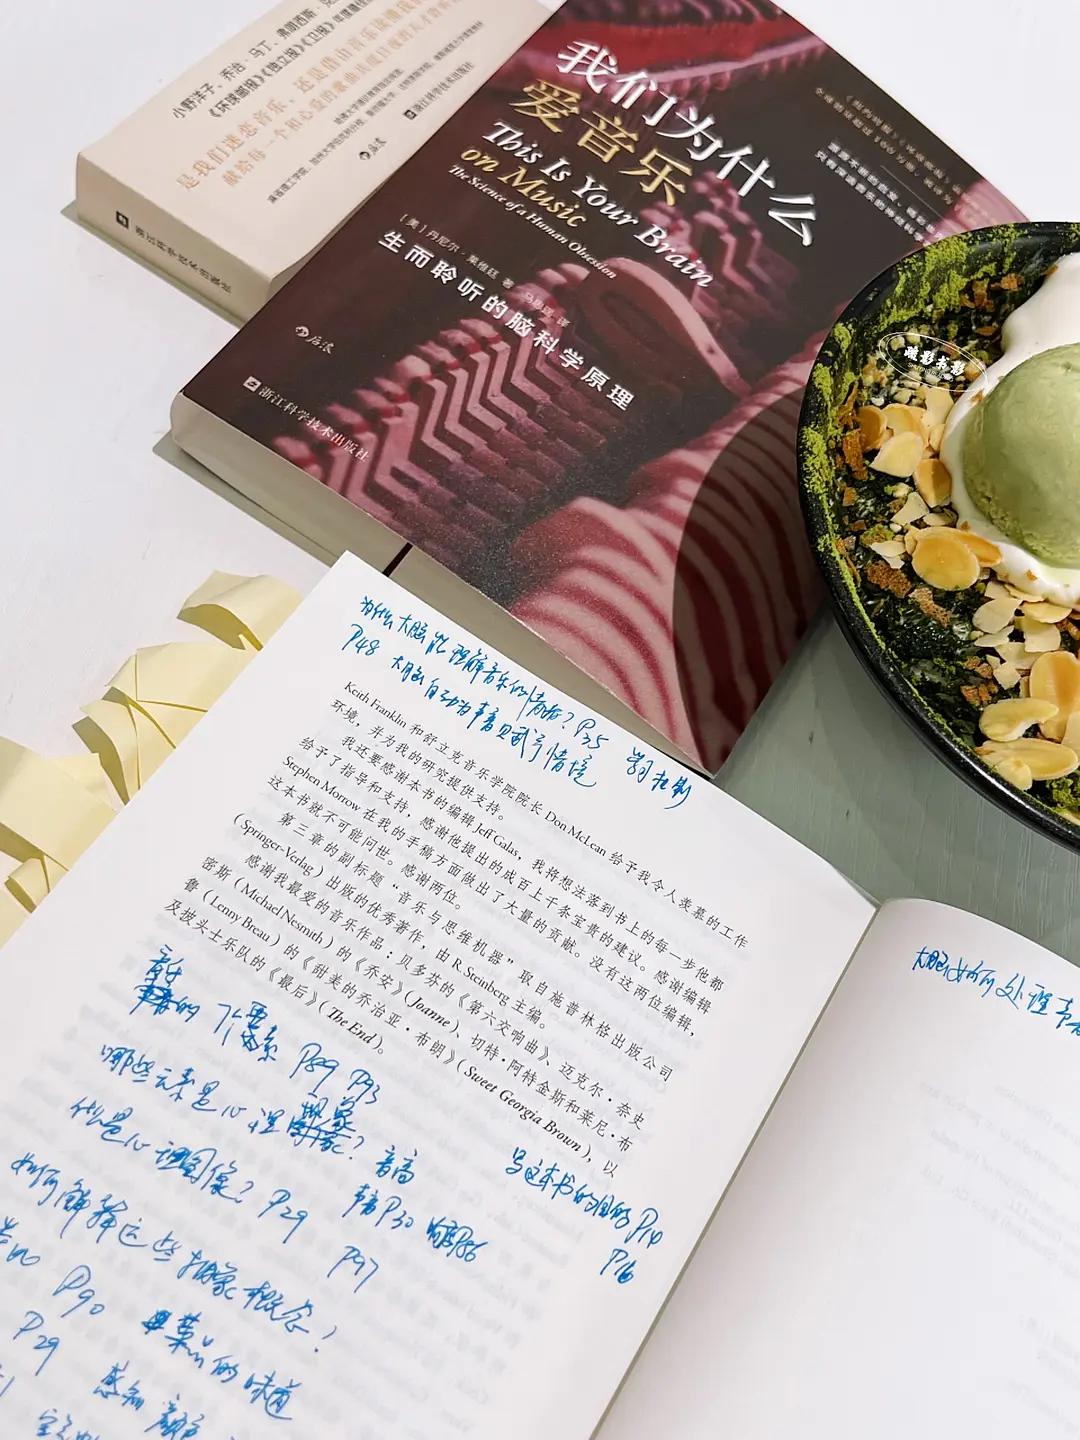 小野洋子、乔治·马丁、弗朗西斯·克
《环球邮报》《独立报》《卫报》年度最佳
是我们迷恋音乐，还是借由音乐读懂我
献给每一个和心爱的歌曲共组自我的天才聆听
浙江科学技术出版社
后浪
浙江科学技术出版社
我们为什么
爱音乐
This Is Your Brain
on Music
The Science of a Human Obsession
[美] 丹尼尔·莱维廷 著
生而聆听的脑科学原理
后浪
浙江科学技术出版社
暖影书影
为什么大脑能理解音乐的情绪？P35
P48 大脑自动为声音赋予情境
Keith Franklin 和舒立克音乐学院院长 Don McLean 给予我令人羡慕的工作
环境，并为我的研究提供支持。
我还要感谢本书的编辑 Jeff Galas，我将想法落到书上的每一步他都
给予了指导和支持，感谢他提出的成百上千条宝贵的建议。感谢编辑
Stephen Morrow 在我的手稿方面做出了大量的贡献。没有这两位编辑，
这本书就不可能问世。感谢两位。
第三章的副标题“音乐与思维机器”取自施普林格出版公司
（Springer-Verlag）出版的优秀著作，由 R. Steinberg 主编。
感谢我最爱的音乐作品：贝多芬的《第六交响曲》、迈克尔·奈史
密斯（Michael Nesmith）的《乔安》（Joanne）、切特·阿特金斯和莱尼·布
鲁（Lenny Breau）的《甜美的乔治亚·布朗》（Sweet Georgia Brown），以
及披头士乐队的《最后》（The End）。
的 7个要素 P89 P93
哪些元素是心理现象？音高
什么是心理图像？P29 P30 P86
如何解释这些抽象概念？ P97
写这本书的目的 P14
P16
P90 的味道
P29 感知颜色
大脑如何处理